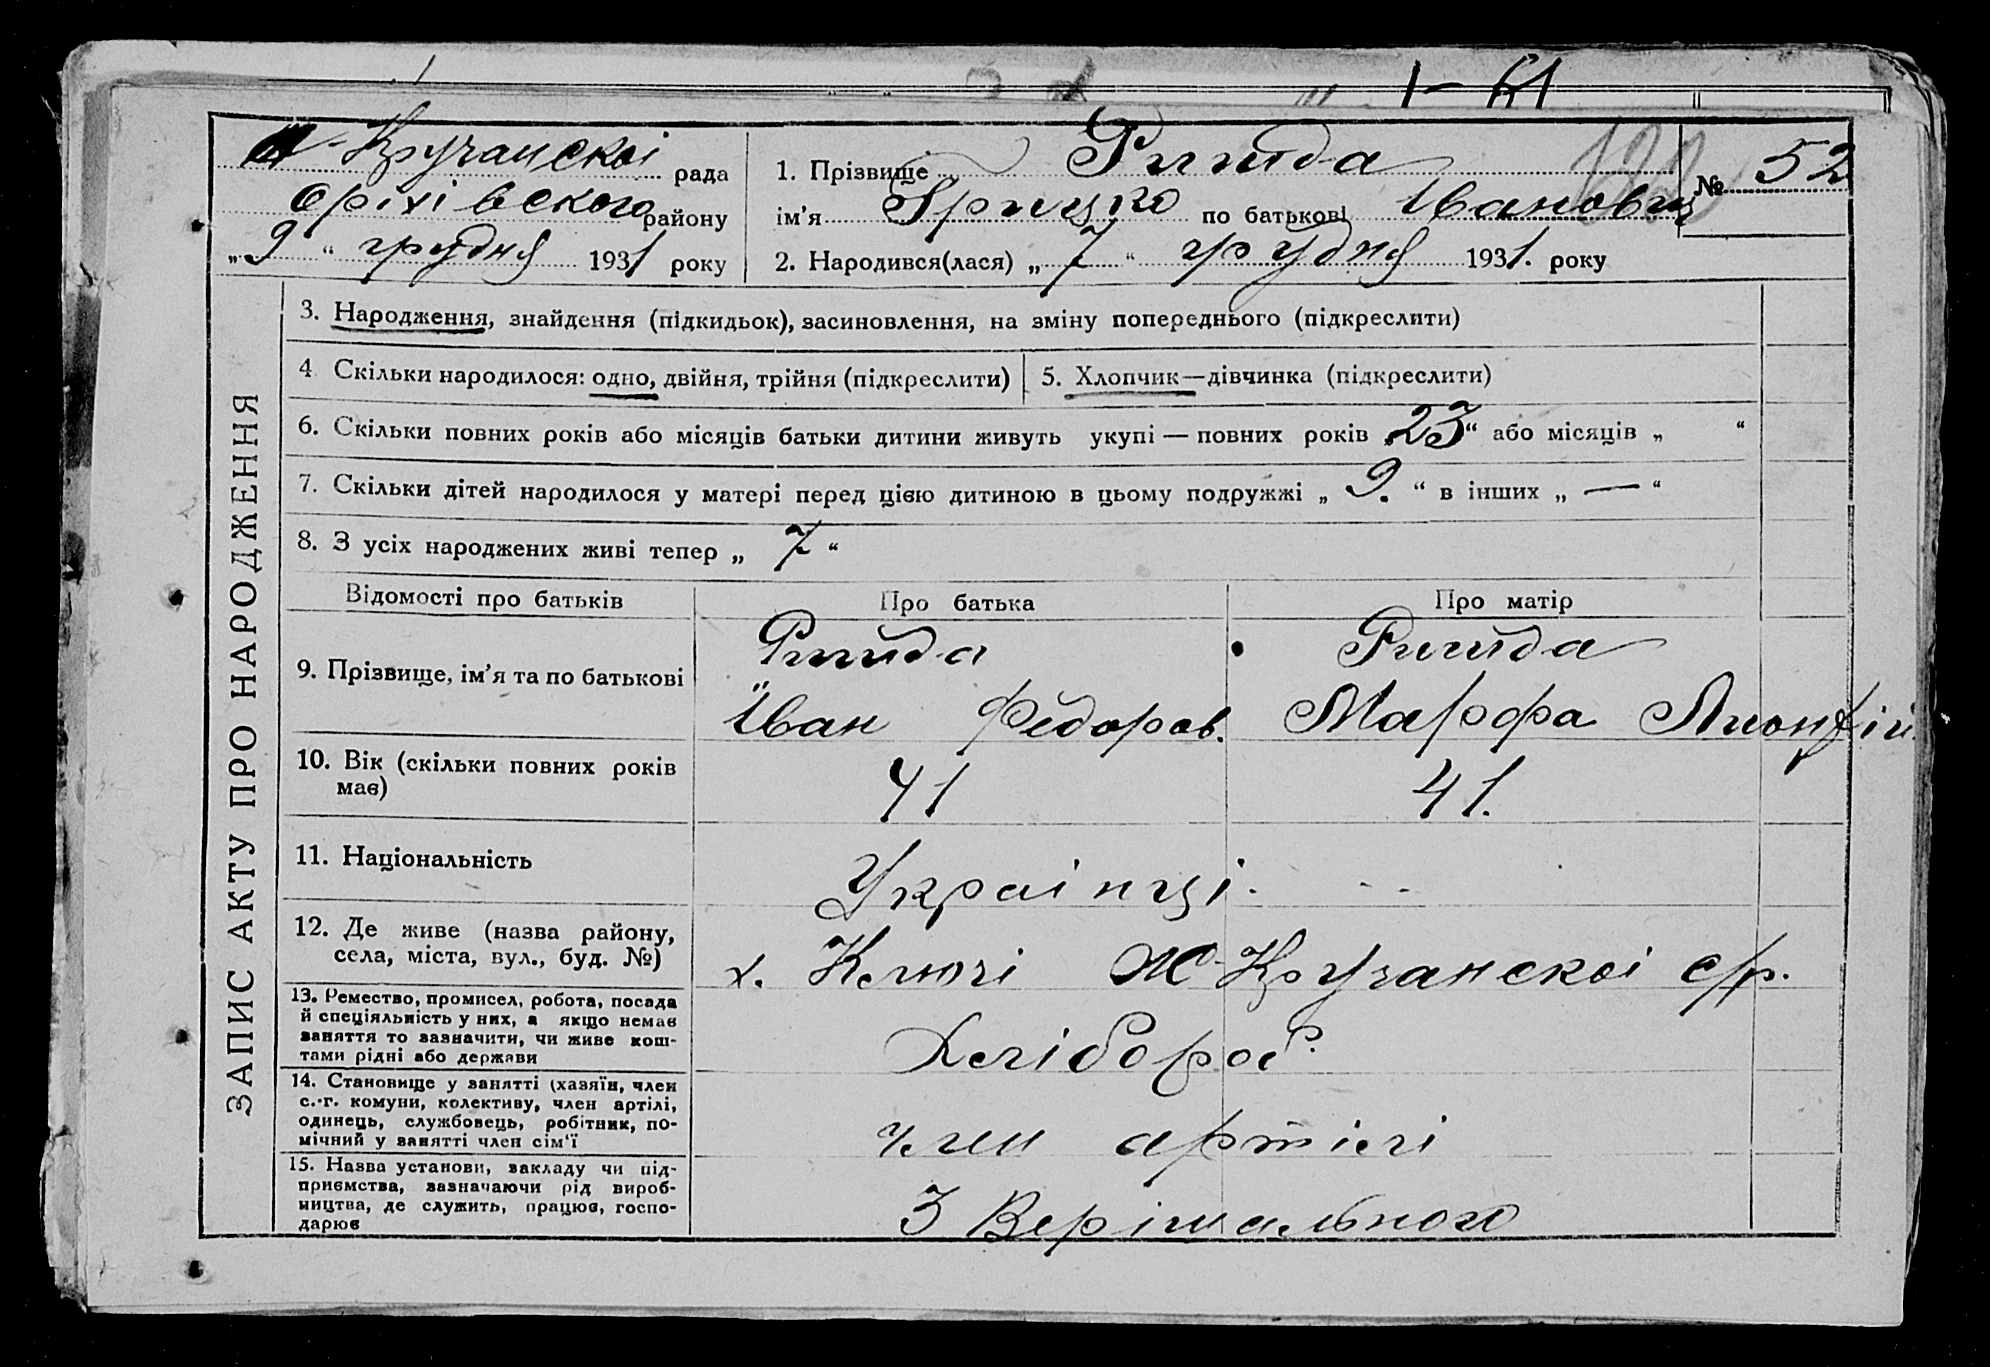 Кручанскої рада
Оріхівського району
„9“ грудня 1931 року
1. Прізвище
№ 52
ім’я Грицко по батькові Іванович
2. Народився(лася) „7“ грудня 1931. року
ЗАПИС АКТУ ПРО НАРОДЖЕННЯ
3. Народження, знайдення (підкидьок), засиновлення, на зміну попереднього (підкреслити)
4 Скільки народилося: одно, двійня, трійня (підкреслити)
5. Хлопчик—дівчинка (підкреслити)
6. Скільки повних років або місяців батьки дитини живуть укупі — повних років „23“ або місяців „ “
7. Скільки дітей народилося у матері перед цією дитиною в цьому подружжі „9.“ в інших „—“
8. З усіх народжених живі тепер „7“
Відомості про батьків Про батька Про матір
9. Прізвище, ім’я та по батькові
Іван Федоров. Марфа
10. Вік (скільки повних років
має)
41 41.
11. Національність
Українці.
12. Де живе (назва району,
села, міста, вул., буд. №)
х. Ключі Ж-Кручанскої с/р.
13. Ремество, промисел, робота, посада
й спеціяльність у них, а якщо немає
заняття то зазначити, чи живе кош-
тами рідні або держави
Хлібороб.
14. Становище у занятті (хазяїн, член
с.-г. комуни, колективу, член артілі,
одинець, службовець, робітник, по-
мічний у занятті член сім’ї
член артілі
15. Назва установи, закладу чи під-
приємства, зазначаючи рід вироб-
ництва, де служить, працює, госпо-
дарює